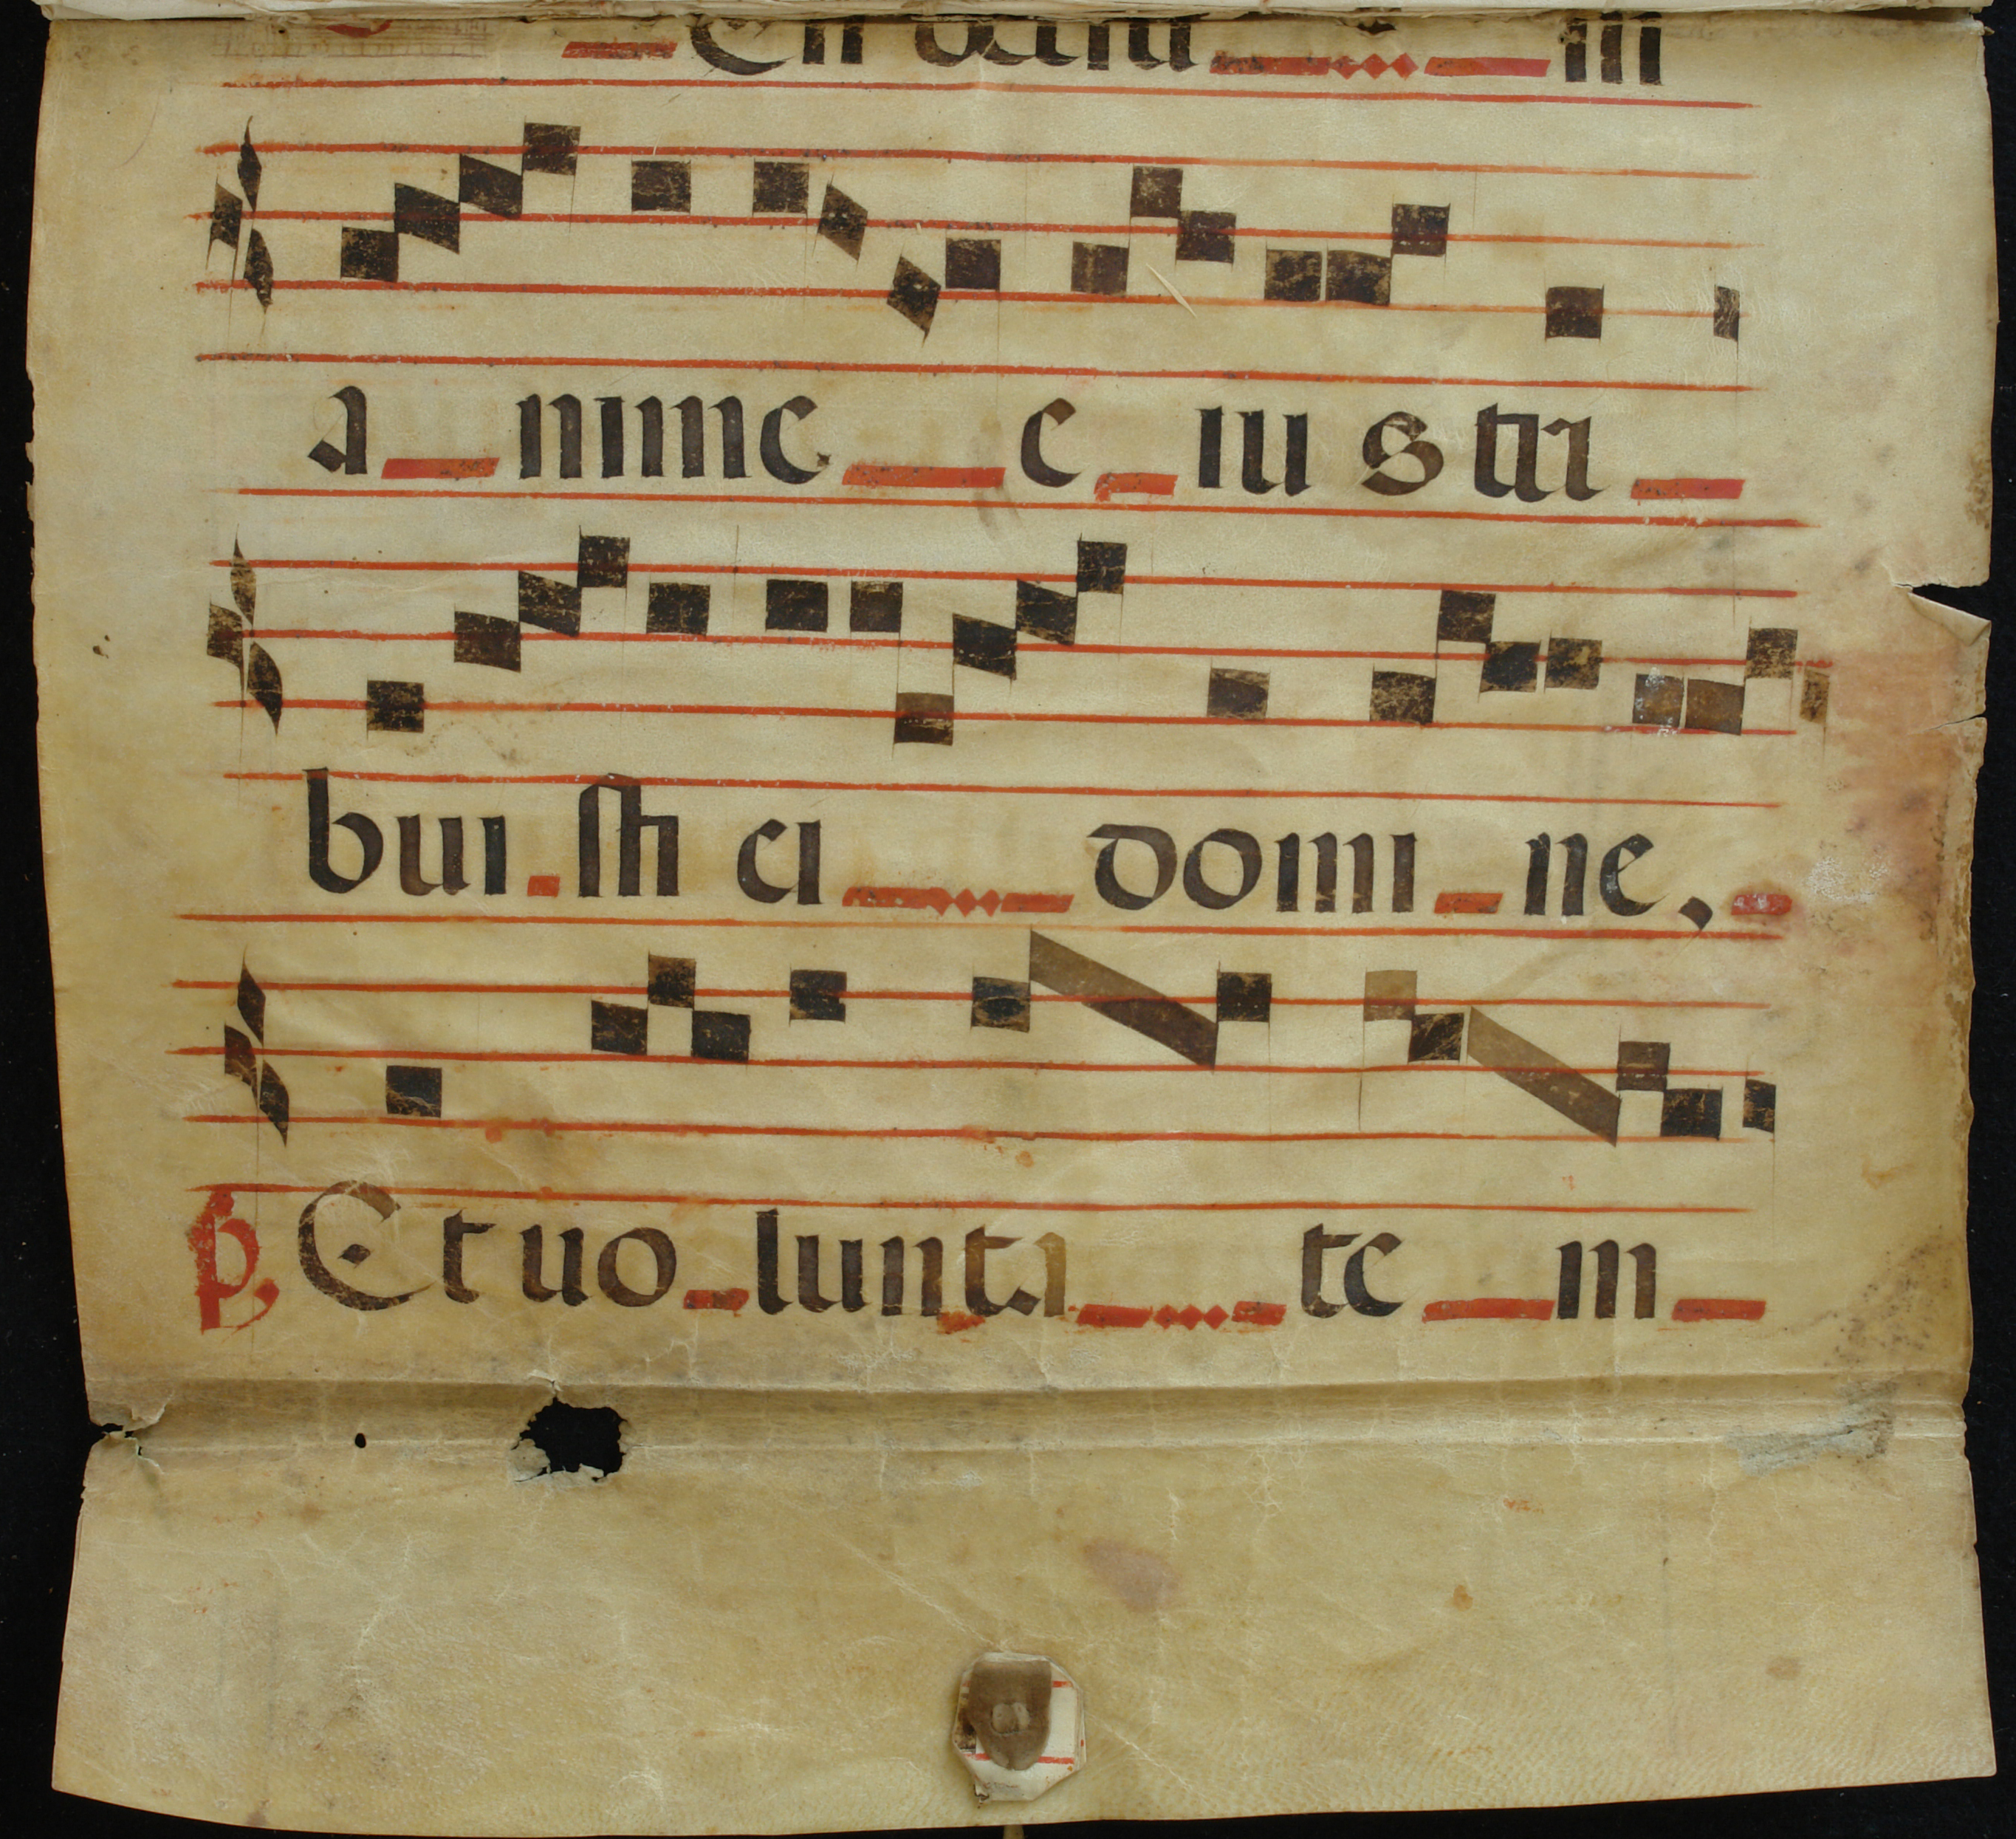 a_nime_e_ius tri_
bui_sti ei_domi_ne,_
Et uo_lunta_te_m_